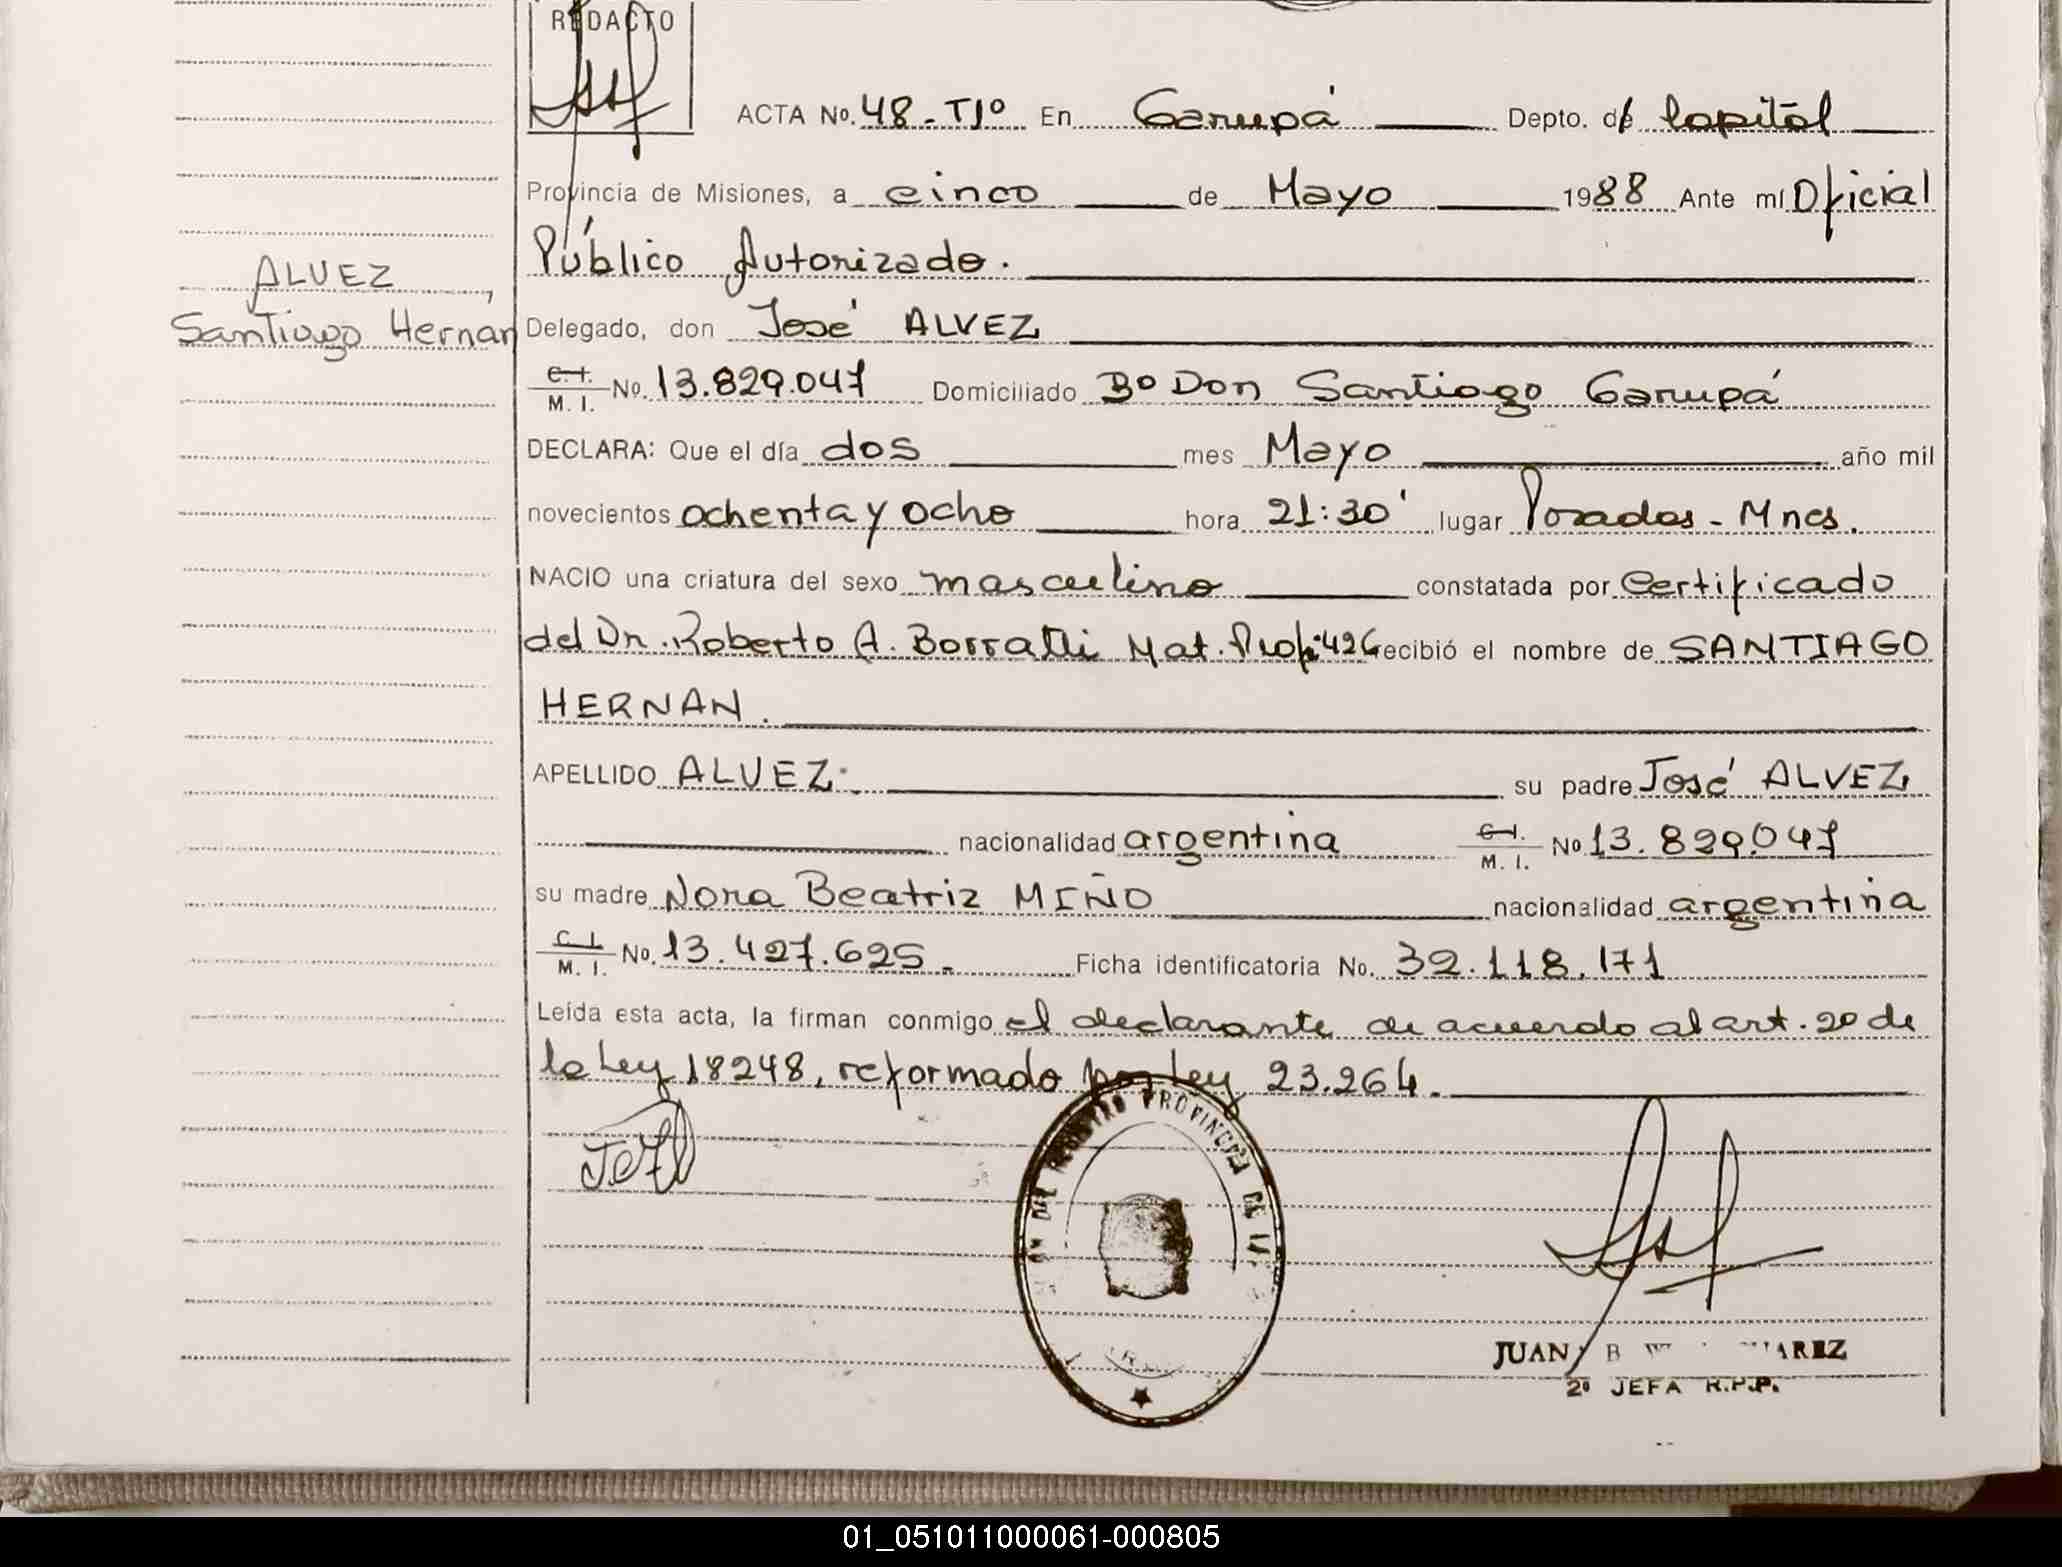 REDACTO
ACTA No. 48 - Tº Iº En Garupá Depto. de Capital
Provincia de Misiones, a cinco de Mayo 1988 Ante mí Oficial
Público Autorizado.
ALVEZ,
Santiago Hernan
Delegado, don José ALVEZ
C.I. M. I. No. 13.829.047 Domiciliado Bº Don Santiago Garupá
DECLARA: Que el día dos mes Mayo año mil
novecientos ochenta y ocho hora 21:30' lugar Posadas - Mnes.
NACIO una criatura del sexo masculino constatada por Certificado
del Dr. Roberto A. Mat. Prof: 426 recibió el nombre de SANTIAGO
HERNAN.
APELLIDO ALVEZ. su padre José ALVEZ
nacionalidad argentina C.I. M. I. No 13.829.047
su madre Nora Beatriz MIÑO nacionalidad argentina
C.I. M. I. No. 13.427.625. Ficha identificatoria No. 32.118.171
Leída esta acta, la firman conmigo el declarante de acuerdo al art. 20 de
la Ley 18248, reformado por Ley 23.264.
REGISTRO PROVINCIAL DE LA
JUAN B
2º JEFA R.P.P.
01_051011000061-000805